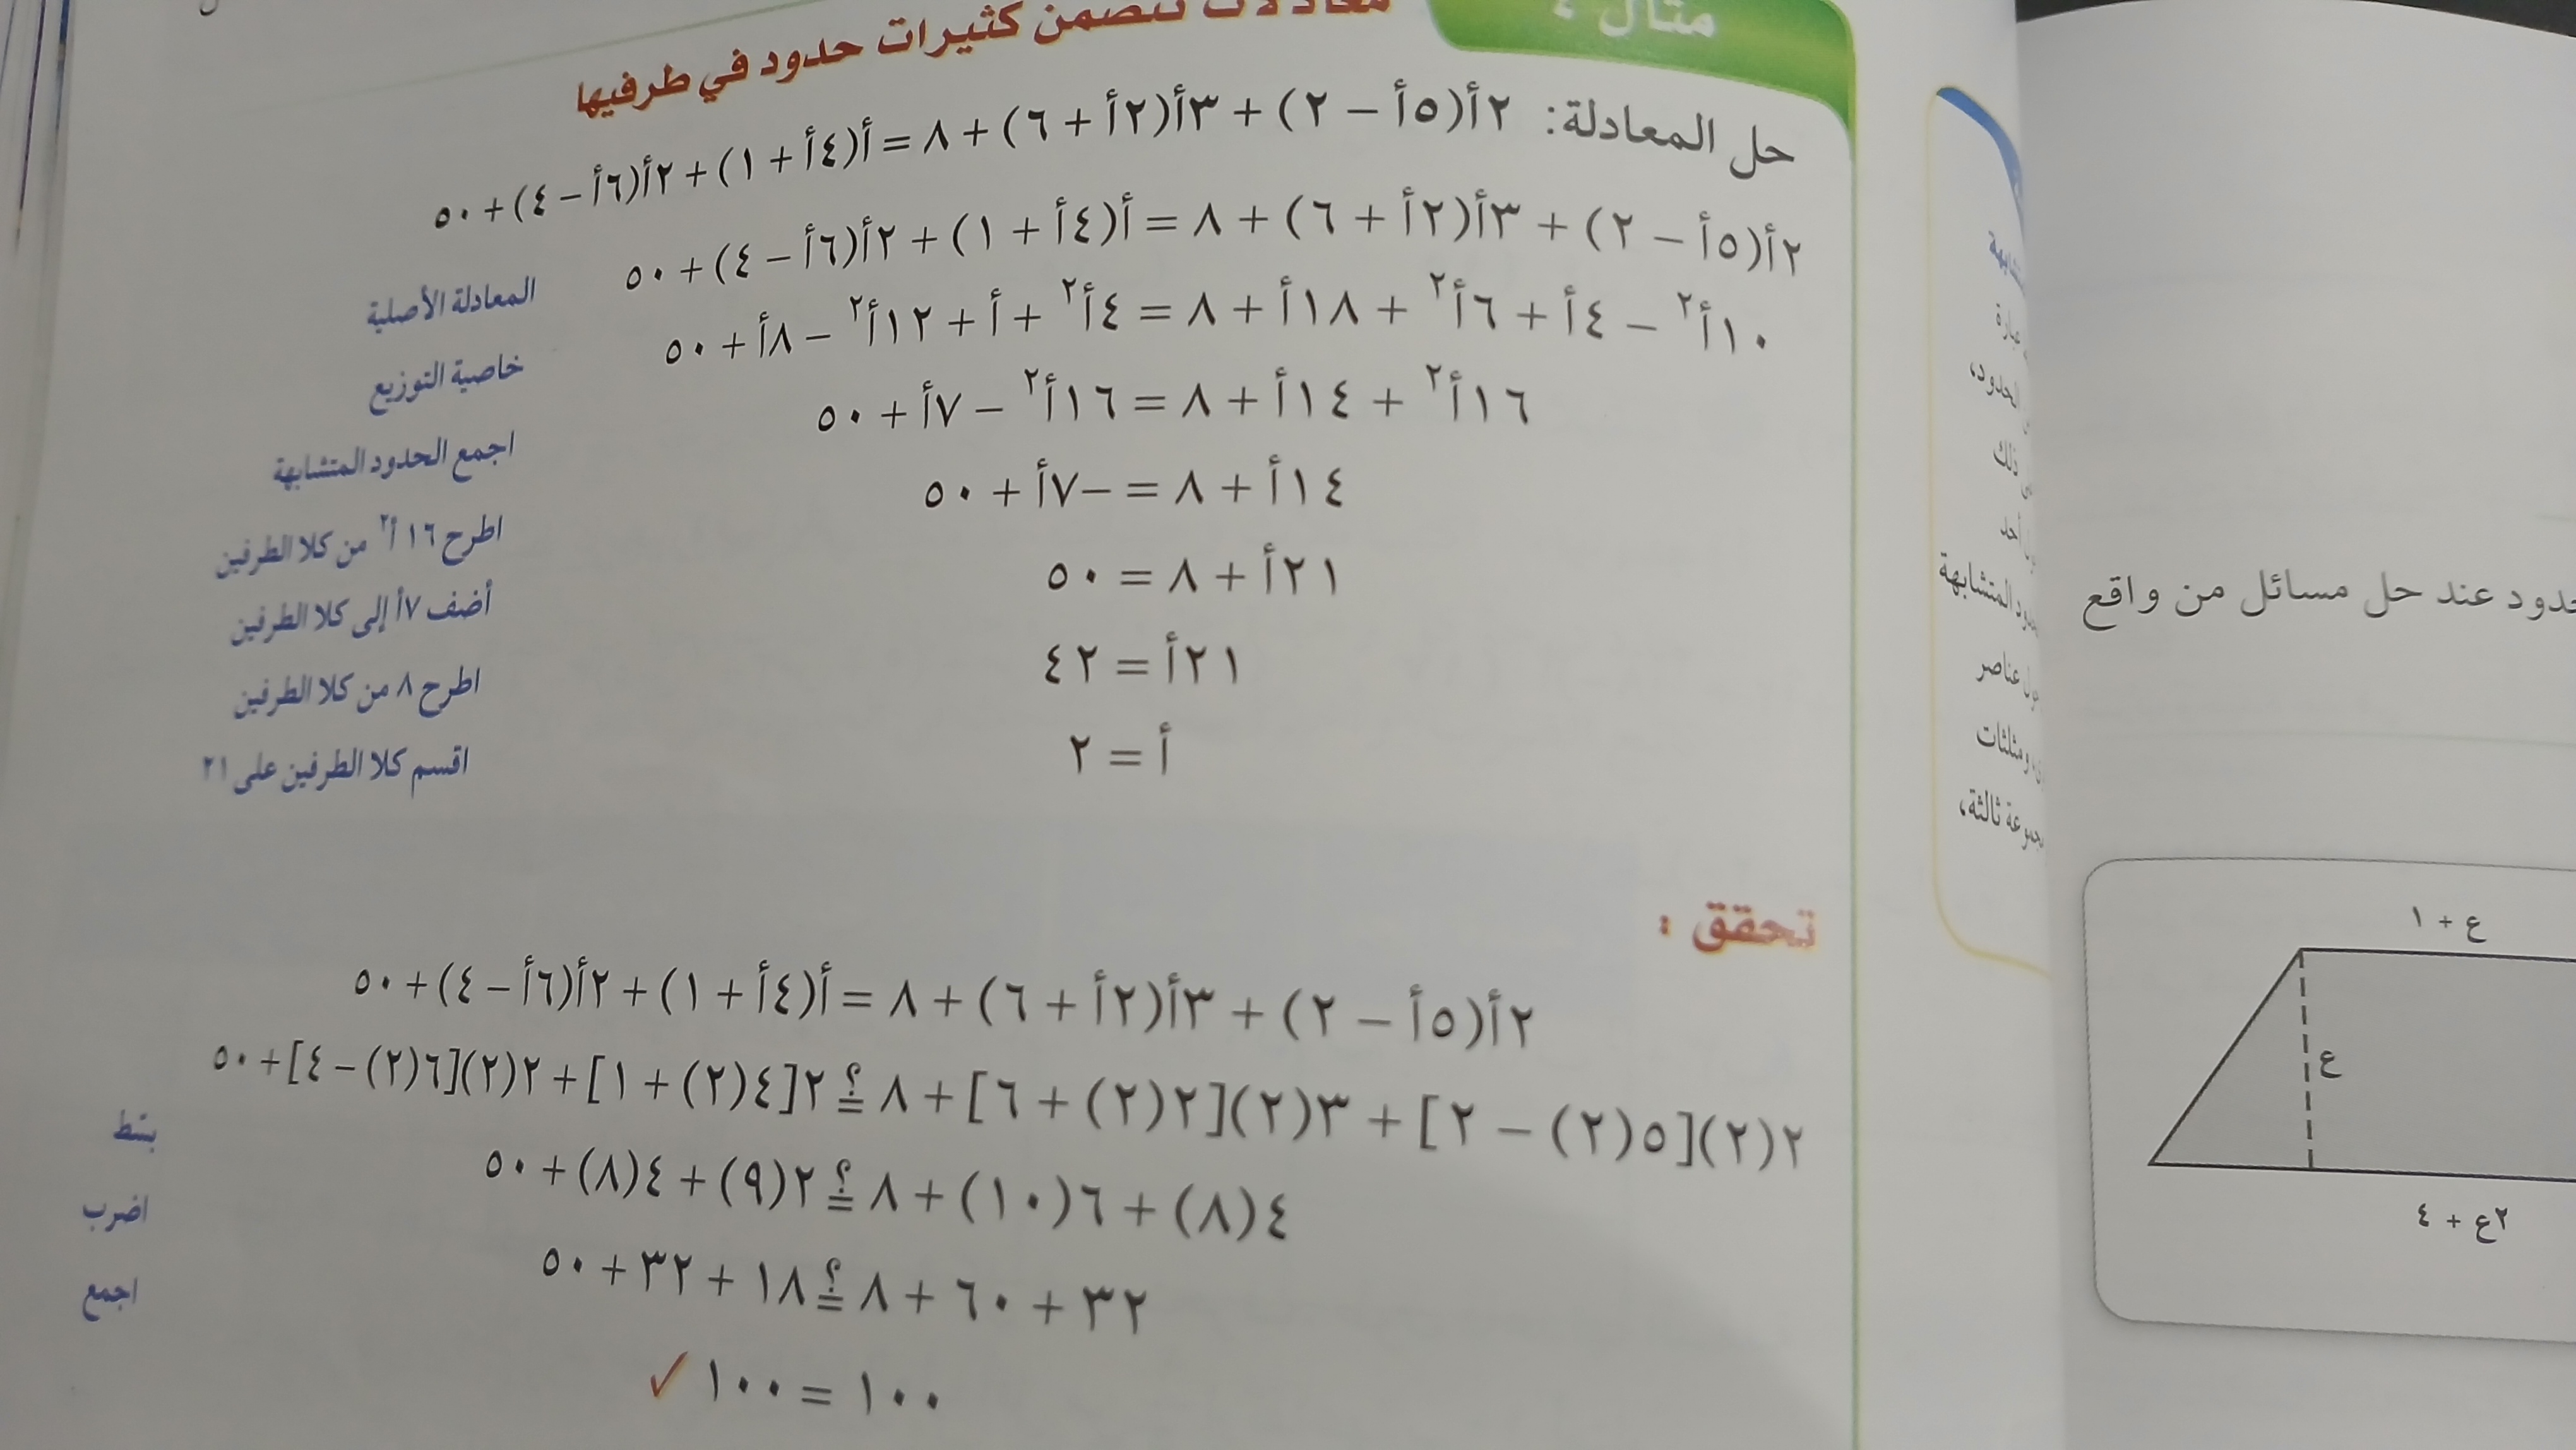 مثال
تتضمن كثيرات حدود في طرفيها
حل المعادلة: ٢أ(٥أ − ٢) + ٣أ(٢أ + ٦) + ٨ = أ(٤أ + ١) + ٢أ(٦أ − ٤) + ٥٠
٢أ(٥أ − ٢) + ٣أ(٢أ + ٦) + ٨ = أ(٤أ + ١) + ٢أ(٦أ − ٤) + ٥٠
المعادلة الأصلية
١٠أ² − ٤أ + ٦أ² + ١٨أ + ٨ = ٤أ² + أ + ١٢أ² − ٨أ + ٥٠
خاصية التوزيع
١٦أ² + ١٤أ + ٨ = ١٦أ² − ٧أ + ٥٠
اجمع الحدود المتشابهة
١٤أ + ٨ = −٧أ + ٥٠
اطرح ١٦أ² من كلا الطرفين
٢١أ + ٨ = ٥٠
أضف ٧أ إلى كلا الطرفين
٢١أ = ٤٢
اطرح ٨ من كلا الطرفين
أ = ٢
اقسم كلا الطرفين على ٢١
تحقق :
٢أ(٥أ − ٢) + ٣أ(٢أ + ٦) + ٨ = أ(٤أ + ١) + ٢أ(٦أ − ٤) + ٥٠
٢(٢)[٥(٢) − ٢] + ٣(٢)[٢(٢) + ٦] + ٨ ≟ ٢[٤(٢) + ١] + ٢(٢)[٦(٢) − ٤] + ٥٠
٤(٨) + ٦(١٠) + ٨ ≟ ٢(٩) + ٤(٨) + ٥٠
بسّط
٣٢ + ٦٠ + ٨ ≟ ١٨ + ٣٢ + ٥٠
اضرب
١٠٠ = ١٠٠ ✓
اجمع
الحدود،
ذلك
المتشابهة
عناصر
ومثلثات
ثالثة،
عند حل مسائل من واقع
ع + ١
ع
٢ع + ٤